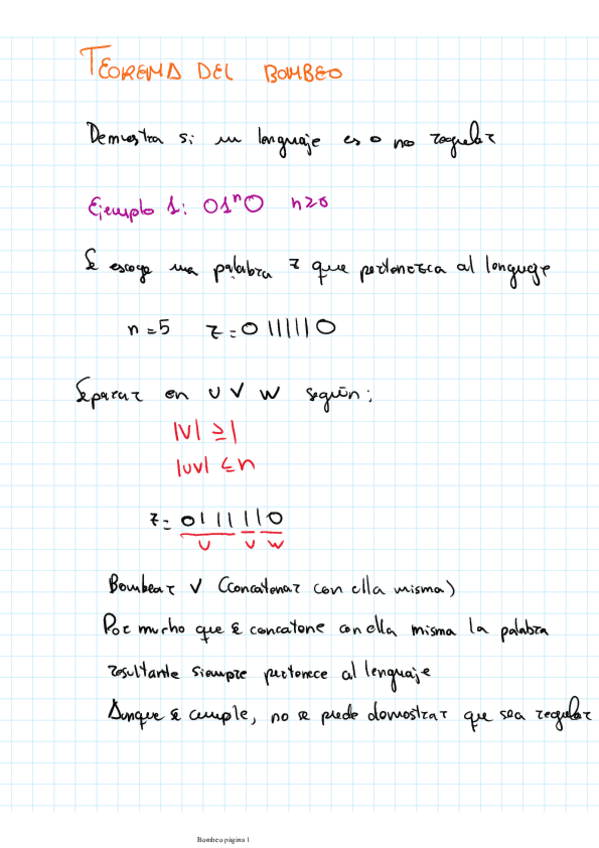 TEOREMA DEL BOMBEO
Demuestra si un lenguaje es o no regular
Ejemplo 1: 01ⁿ0 n≥0
Se escoge una palabra z que pertenezca al lenguaje
n=5 z=0111110
Separar en u v w según:
|v| ≥ 1
|uv| ≤ n
z= 01111110
u v w
Bombear v (concatenar con ella misma)
Por mucho que se concatene con ella misma la palabra
resultante siempre pertenece al lenguaje
Aunque se cumple, no se puede demostrar que sea regular
Bombeo página 1